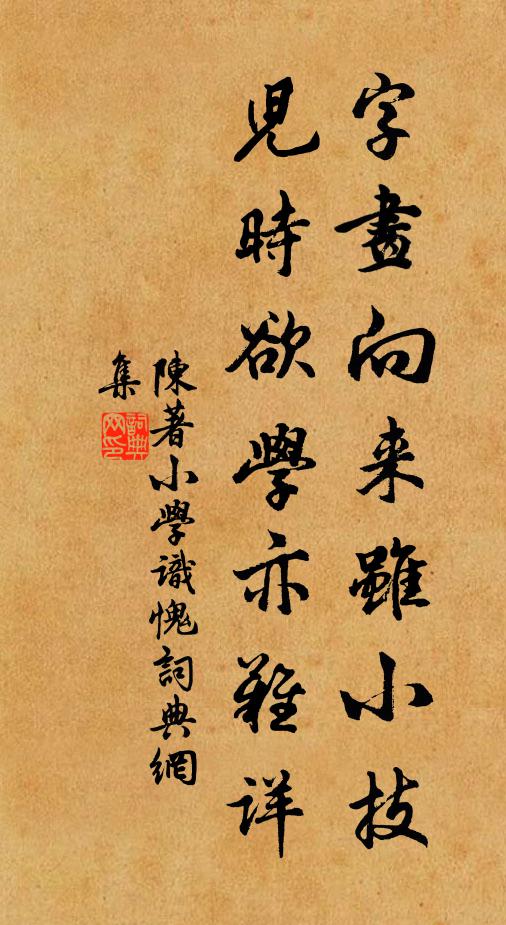 字畫向来雖小技
兒時欲學亦難详
陳著小學識愧詞典網
集
詞典網印